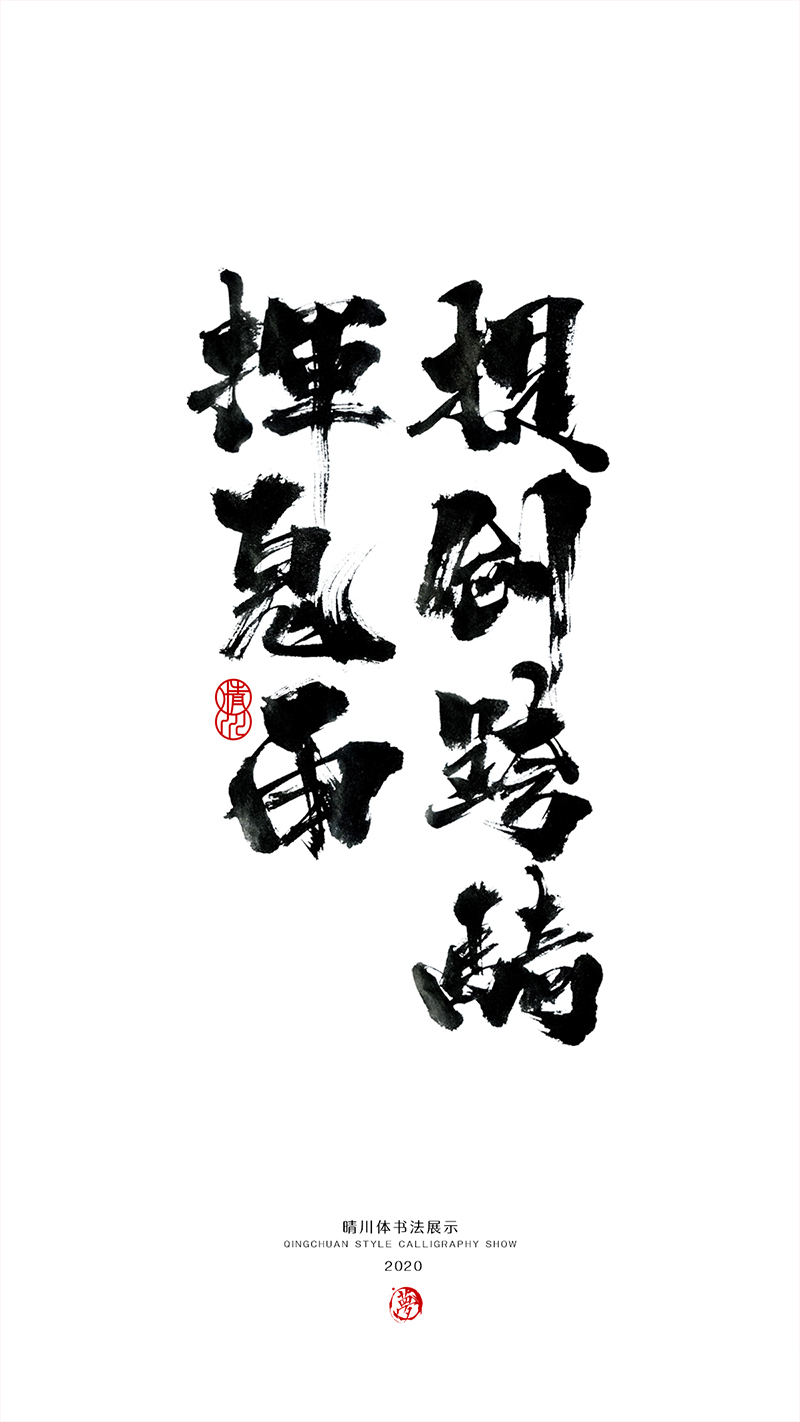 提劍跨騎
揮鬼雨
晴川
晴川体书法展示
QINGCHUAN STYLE CALLIGRAPHY SHOW
2020
夢